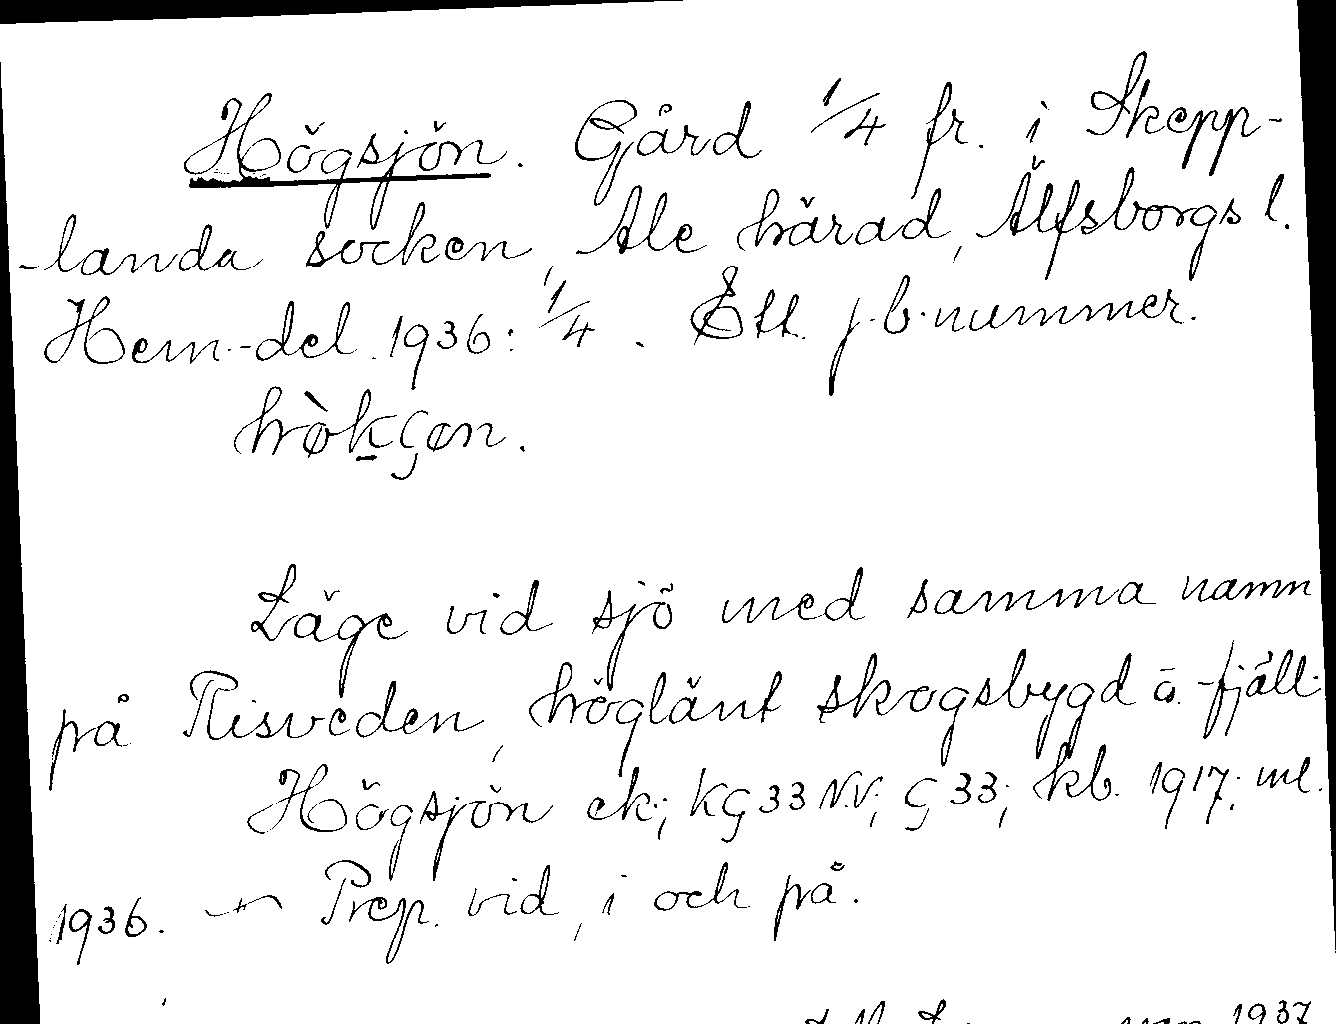 Högsjön. Gård 1/4 fr. i Skepp-
-landa socken, Ale härad, Älfsborgs l.
Hem.-del. 1936: 1/4. Ett j.b.nummer.
hø̀kşøn.
Läge vid sjö med samma namn
på Risveden, höglänt skogsbygd o. fjäll.
Högsjön ek.; KG 33 N.V.; G 33; kb. 1917; ml.
1936. — Prep. vid, i och på.
1937